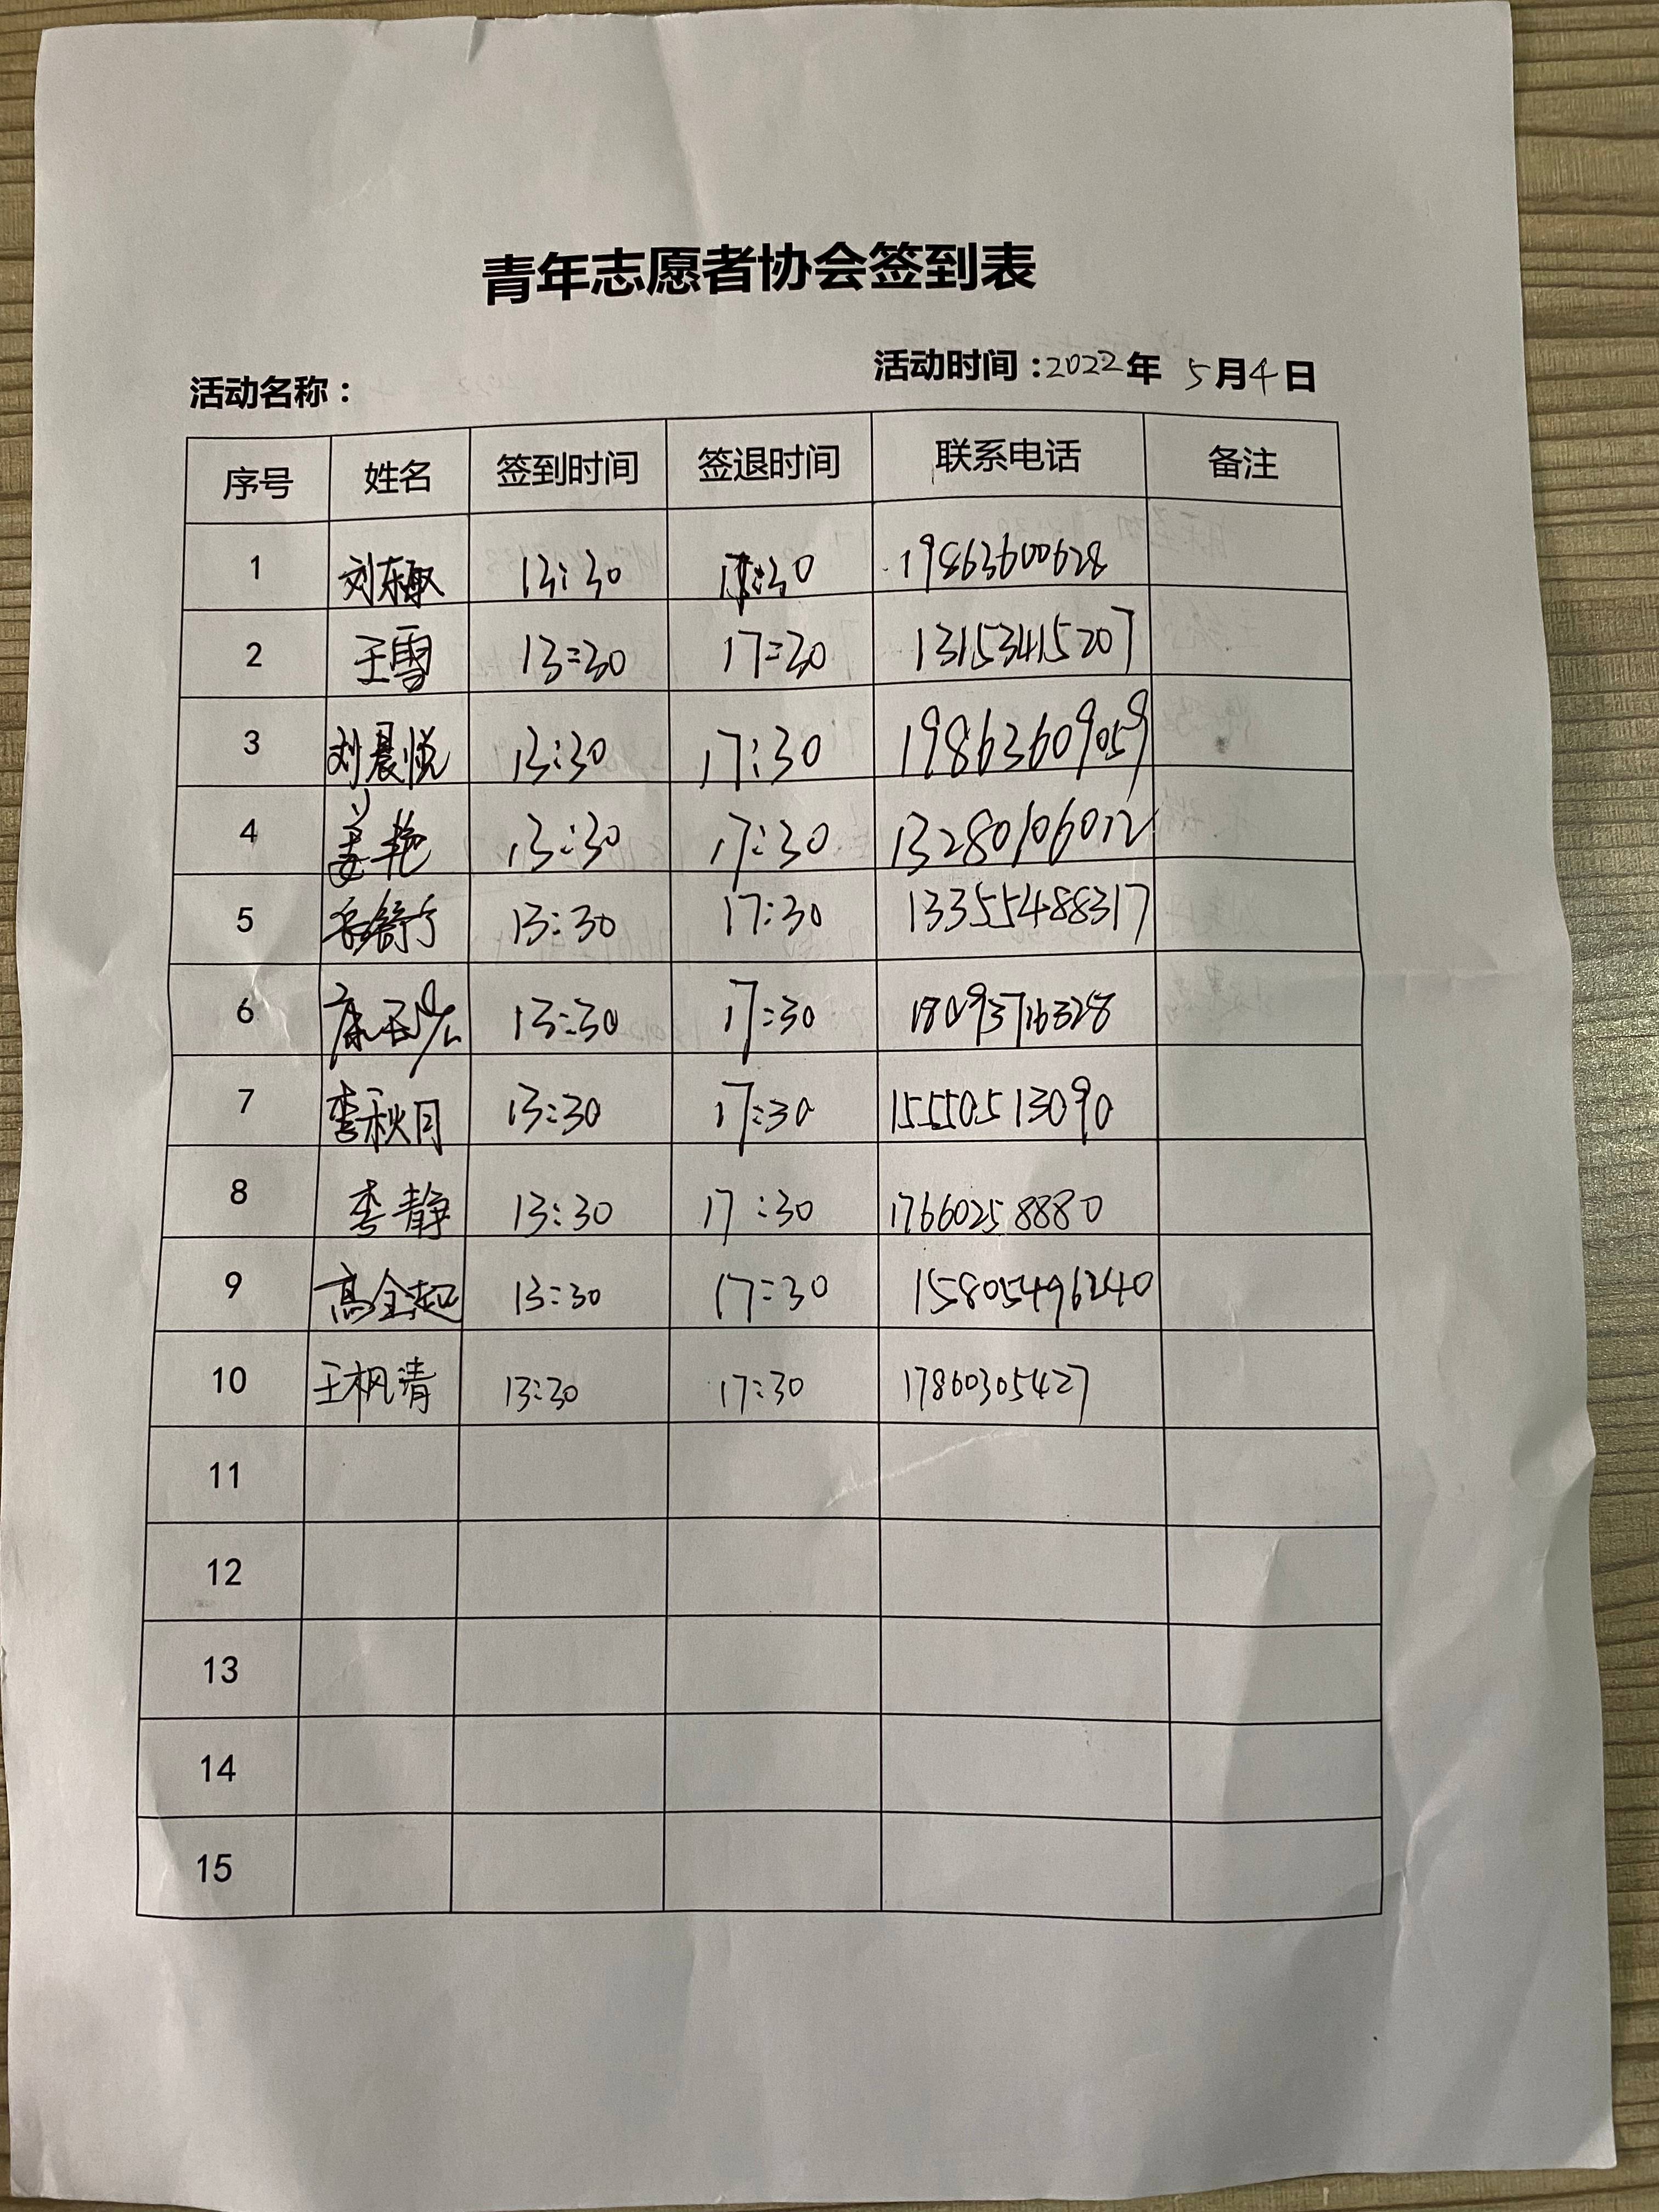 青年志愿者协会签到表
活动名称： 活动时间：2022年 5月4日
序号 姓名 签到时间 签退时间 联系电话 备注
1 刘东敏 13:30 17:30 19863600628
2 王雪 13:30 17:30 13153415207
3 刘晨悦 13:30 17:30 19863609059
4 姜艳 13:30 17:30 13280106012
5 13:30 17:30 13355488317
6 13:30 17:30 18093716328
7 李秋月 13:30 17:30 15550513090
8 李静 13:30 17:30 17660258880
9 高全起 13:30 17:30 15805496240
10 王枫清 13:30 17:30 17860305427
11
12
13
14
15